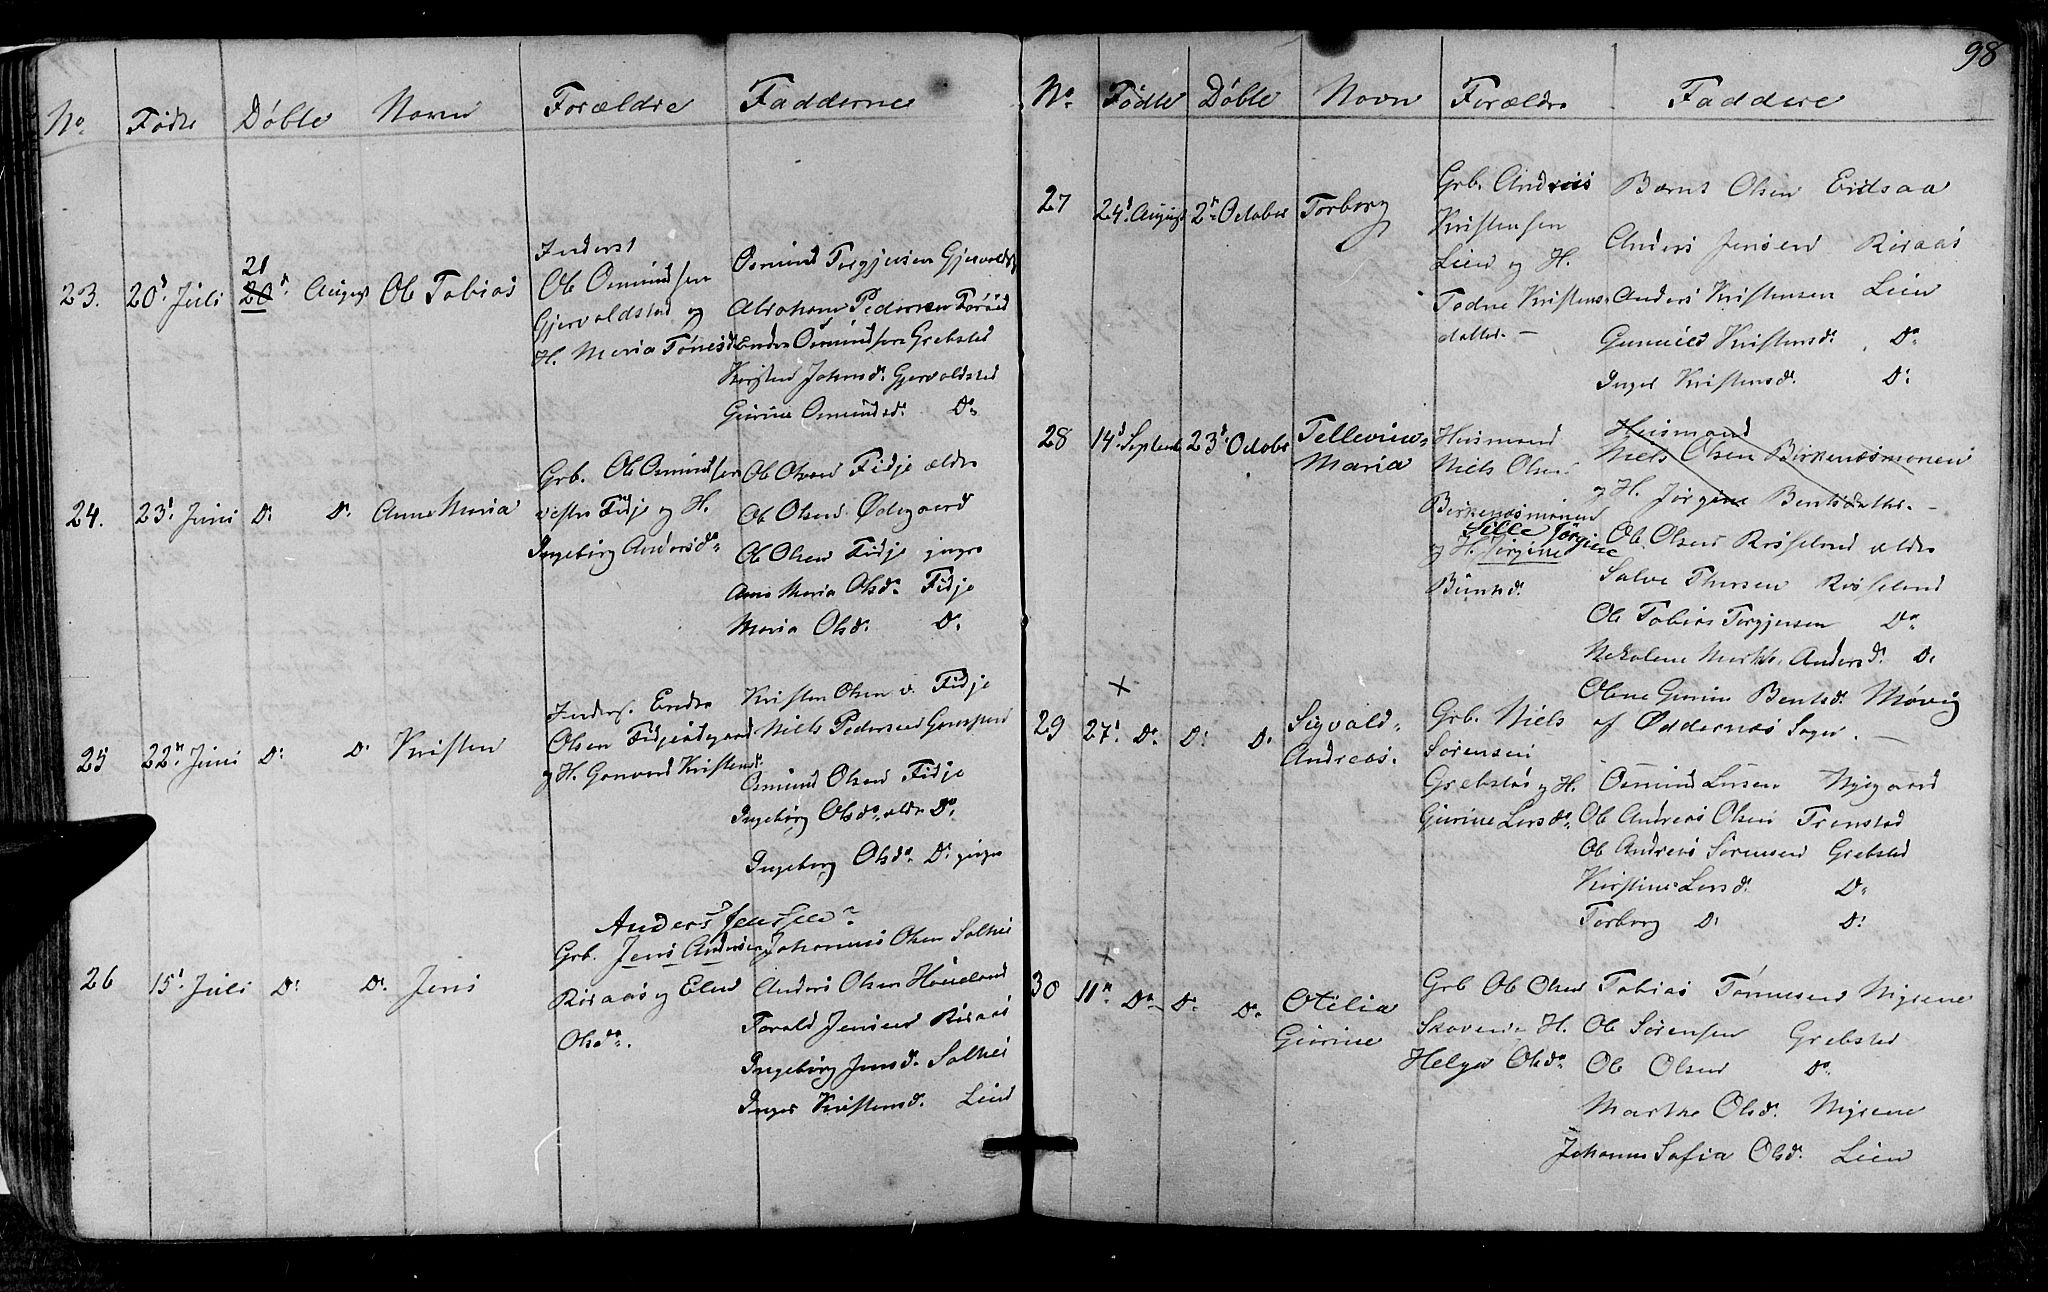 No Fødte Døbte Navn Forældre Faddernes
23. 20d Juli 21 20d August Ole Tobias
Inderst
Ole Osmundsen
Gjervoldstad og
H. Maria Tønesd
Osmund Tergjusen Gjervoldst
Abraham Pedersen
Endre Osmundsen Grebsted
Johnsd. Gjervoldsted
Gurine Osmundsd. Do
24. 23d Juni D. D. Anne Maria
Grb. Ole Osmundsen
vestre Fidje og H.
Ingeborg Andersd.
Ole Olsen Fidje ældre
Ole Olsen Ødegaard
Ole Olsen Fidje yngre
Anne Maria Olsd. Fidje
Maria Olsd. D.
25 22n Juni D. D. Kristen
Inders. Endre
Olsen Fidjeødegaard
og H. Gonvord Kristensd.
Kristen Olsen v. Fidje
Niels Pedersen
Osmund Olsen Fidje
Ingeborg Olsd. ældre D.
Ingeborg Olsd. D. yngre
26 15d Juli D. D. Jens
Anders Jenssen
Grb. Jens Andersen
Risaas og Elen
Olsd.
Johannes Olsen Solhei
Anders Olsen Høuland
Torald Jensen Risaas
Ingeborg Jensd. Solhei
Inger Kristensd. Lien
98
No. Fødte Døbte Navn Forældre Faddere
27 24d August 2n October Torborg
Grb. Andreas
Kristensen
Lien og H.
Todne Kristens-
datter. —
Bernt Olsen Eidsaa
Anders Jensen Risaas
Anders Kristensen Lien
Gunnild Kristensd. Do
Inger Kristensd. D.
28 14d September 23d October Tellevine
Maria
Huusmand
Niels Olsen
Birkenæsmonen
Sille Jørgine
og H. Jørgine
Bentsd.
Huusmand
Niels Olsen Birkenæsmonen
og H. Jørgine Bentsdatter. —
Ole Olsen Røsseland ældre
Salve Thorsen Røsseland
Ole Tobias Tergjusen Do
Nekolene Andersd. D.
Olene Gurine Bentsd. Møvig
af Oddernæs Sogn. —
×
29 27d Do D. D. Sigvald
Andreas.
Grb. Niels
Sørensen
Grebstad og H.
Gurine Larsd.
Osmund Larsen Nygaard
Ole Andreas Olsen Trenstad
Ole Andreas Sørensen Grebsted
Kirstine Larsd. D.
Torborg D. D.
×
30 11n Do D. D. Otilia
Gurine
Grb Ole Olsen
Skoven og H.
Helga Olsd.
Tobias Tønnesen
Ole Sørensen Grebsted
Ole Olsen Do
Marthe Olsd.
Johanne Sofia Olsd. Lien